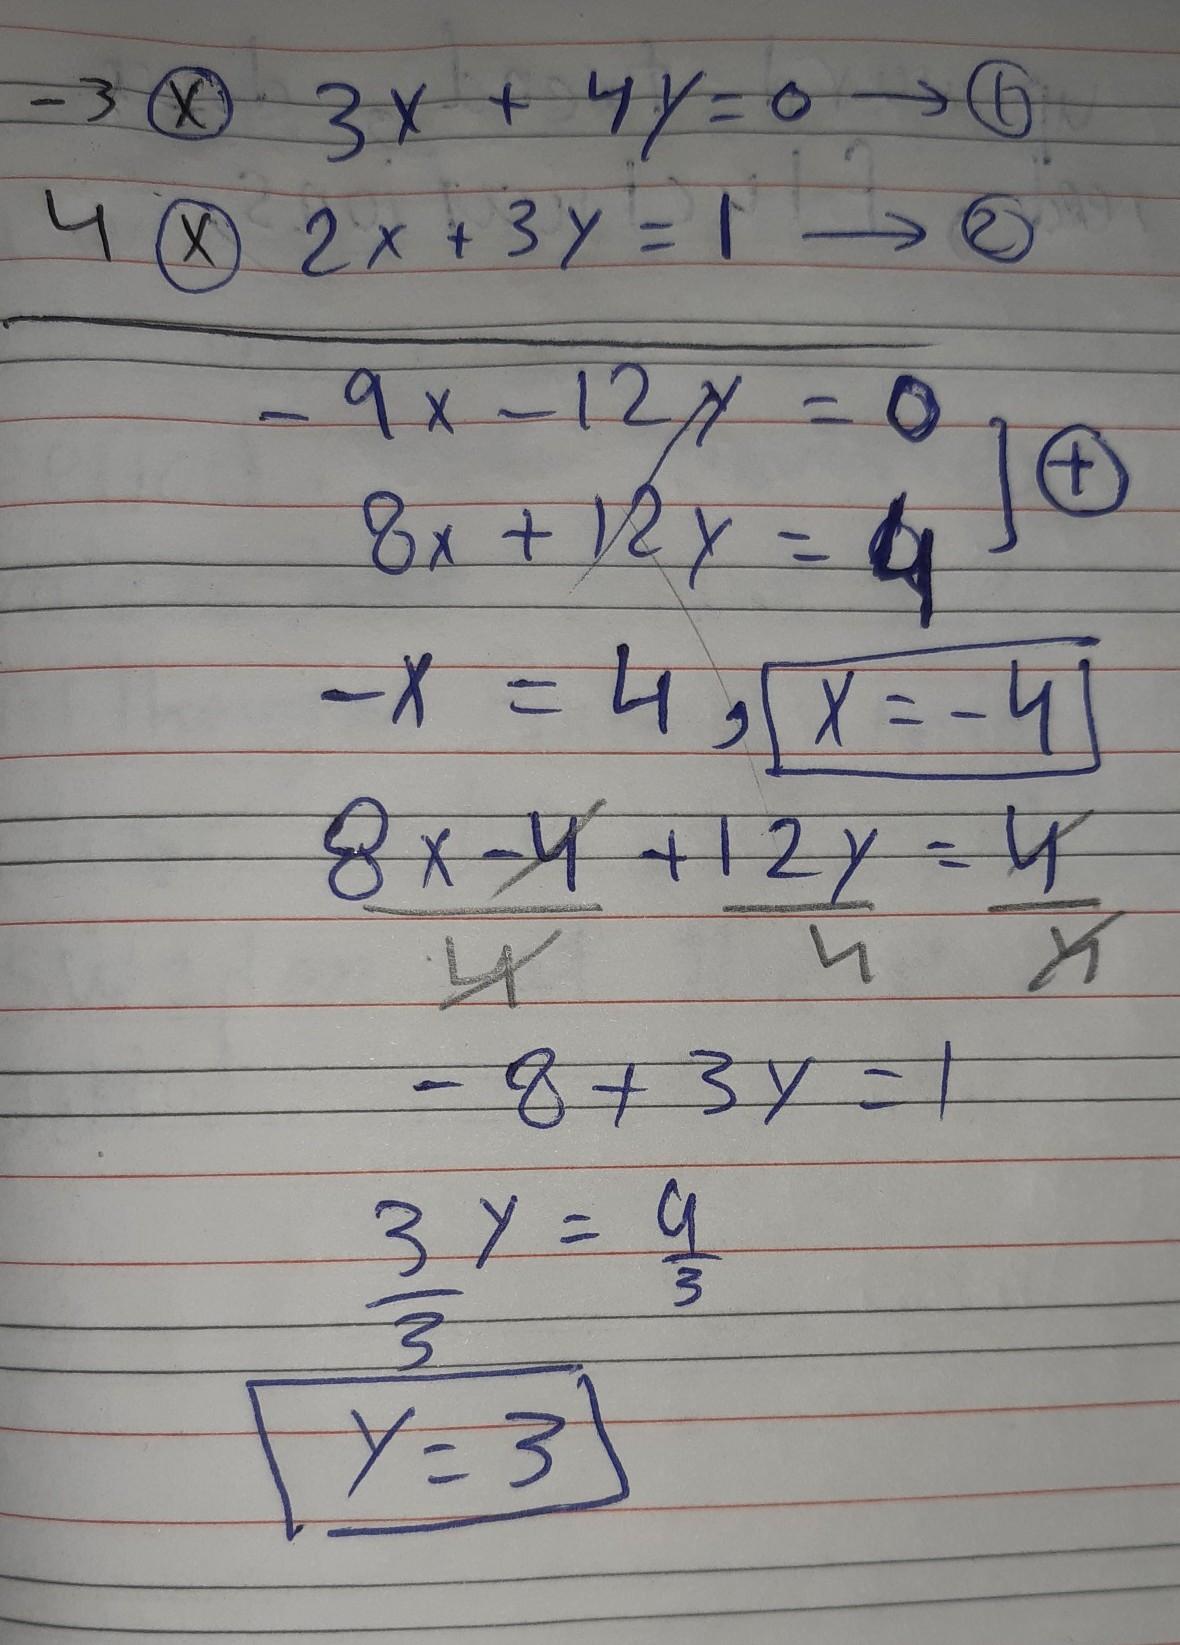 -3 ⓧ 3x + 4y = 0 → ①
4 ⓧ 2x + 3y = 1 → ②
-9x - 12y = 0
8x + 12y = 4 ] ⊕
-x = 4 , x = -4
8x-4 + 12y = 4
4 4 4
-8 + 3y = 1
3 y = 9
3 3
y = 3